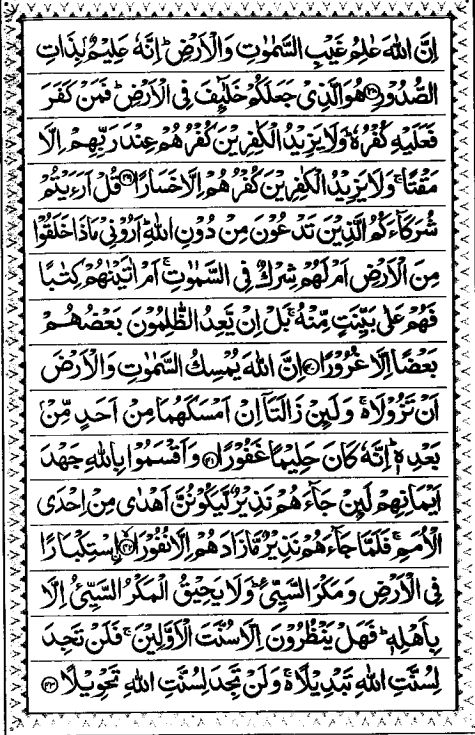 اِنَّ اللّٰهَ عٰلِمُ غَيْبِ السَّمٰوٰتِ وَالْاَرْضِ ؕ اِنَّهٗ عَلِيْمٌۢ بِذَاتِ
الصُّدُوْرِ ﴿۳۸﴾ هُوَ الَّذِىْ جَعَلَكُمْ خَلٰٓئِفَ فِى الْاَرْضِ ؕ فَمَنْ كَفَرَ
فَعَلَيْهِ كُفْرُهٗ ؕ وَلَا يَزِيْدُ الْكٰفِرِيْنَ كُفْرُهُمْ عِنْدَ رَبِّهِمْ اِلَّا
مَقْتًا ۚ وَلَا يَزِيْدُ الْكٰفِرِيْنَ كُفْرُهُمْ اِلَّا خَسَارًا ﴿۳۹﴾ قُلْ اَرَءَيْتُمْ
شُرَكَآءَكُمُ الَّذِيْنَ تَدْعُوْنَ مِنْ دُوْنِ اللّٰهِ ؕ اَرُوْنِىْ مَاذَا خَلَقُوْا
مِنَ الْاَرْضِ اَمْ لَهُمْ شِرْكٌ فِى السَّمٰوٰتِ ۚ اَمْ اٰتَيْنٰهُمْ كِتٰبًا
فَهُمْ عَلٰى بَيِّنَتٍ مِّنْهُ ۚ بَلْ اِنْ يَّعِدُ الظّٰلِمُوْنَ بَعْضُهُمْ
بَعْضًا اِلَّا غُرُوْرًا ﴿۴۰﴾ اِنَّ اللّٰهَ يُمْسِكُ السَّمٰوٰتِ وَالْاَرْضَ
اَنْ تَزُوْلَا ۚ۬ وَلَئِنْ زَالَتَاۤ اِنْ اَمْسَكَهُمَا مِنْ اَحَدٍ مِّنْۢ
بَعْدِهٖ ؕ اِنَّهٗ كَانَ حَلِيْمًا غَفُوْرًا ﴿۴۱﴾ وَاَقْسَمُوْا بِاللّٰهِ جَهْدَ
اَيْمَانِهِمْ لَئِنْ جَآءَهُمْ نَذِيْرٌ لَّيَكُوْنُنَّ اَهْدٰى مِنْ اِحْدَى
الْاُمَمِ ۚ فَلَمَّا جَآءَهُمْ نَذِيْرٌ مَّا زَادَهُمْ اِلَّا نُفُوْرًا ﴿۴۲﴾ اِسْتِكْبَارًا
فِى الْاَرْضِ وَمَكْرَ السَّيِّئِ ؕ وَلَا يَحِيْقُ الْمَكْرُ السَّيِّئُ اِلَّا
بِاَهْلِهٖ ؕ فَهَلْ يَنْظُرُوْنَ اِلَّا سُنَّتَ الْاَوَّلِيْنَ ۚ فَلَنْ تَجِدَ
لِسُنَّتِ اللّٰهِ تَبْدِيْلًا ۚ۬ وَلَنْ تَجِدَ لِسُنَّتِ اللّٰهِ تَحْوِيْلًا ﴿۴۳﴾